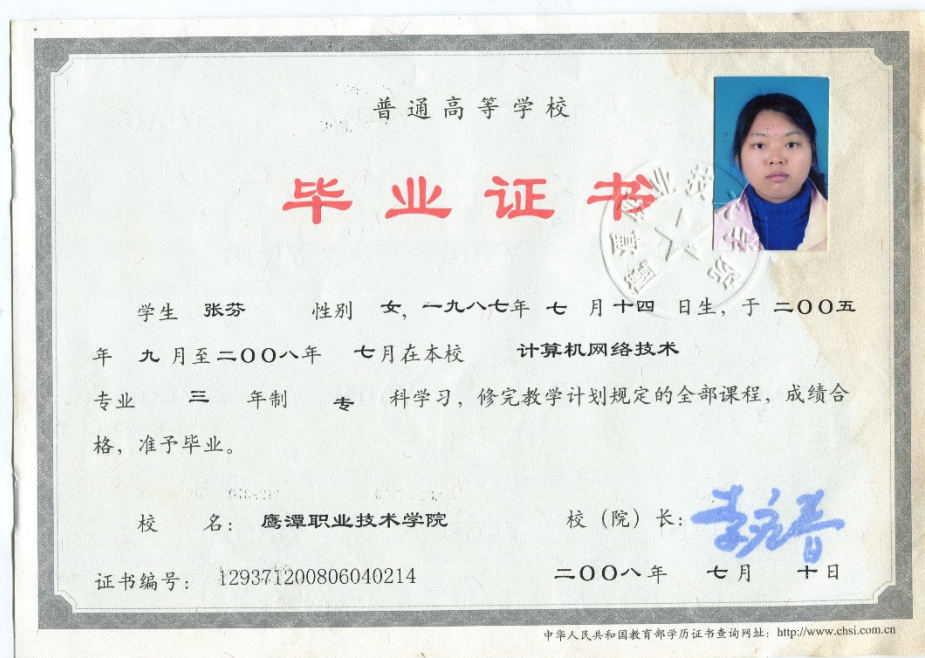 普通高等学校
毕业证书
学生 张芬 性别 女,一九八七年 七 月十四 日生,于 二〇〇五
年 九 月至二〇〇八年 七月在本校 计算机网络技术
专业 三 年制 专 科学习,修完教学计划规定的全部课程,成绩合
格,准予毕业。
校 名: 鹰潭职业技术学院 校(院)长:
证书编号: 129371200806040214 二〇〇八年 七月 十日
中华人民共和国教育部学历证书查询网址: http://www.chsi.com.cn